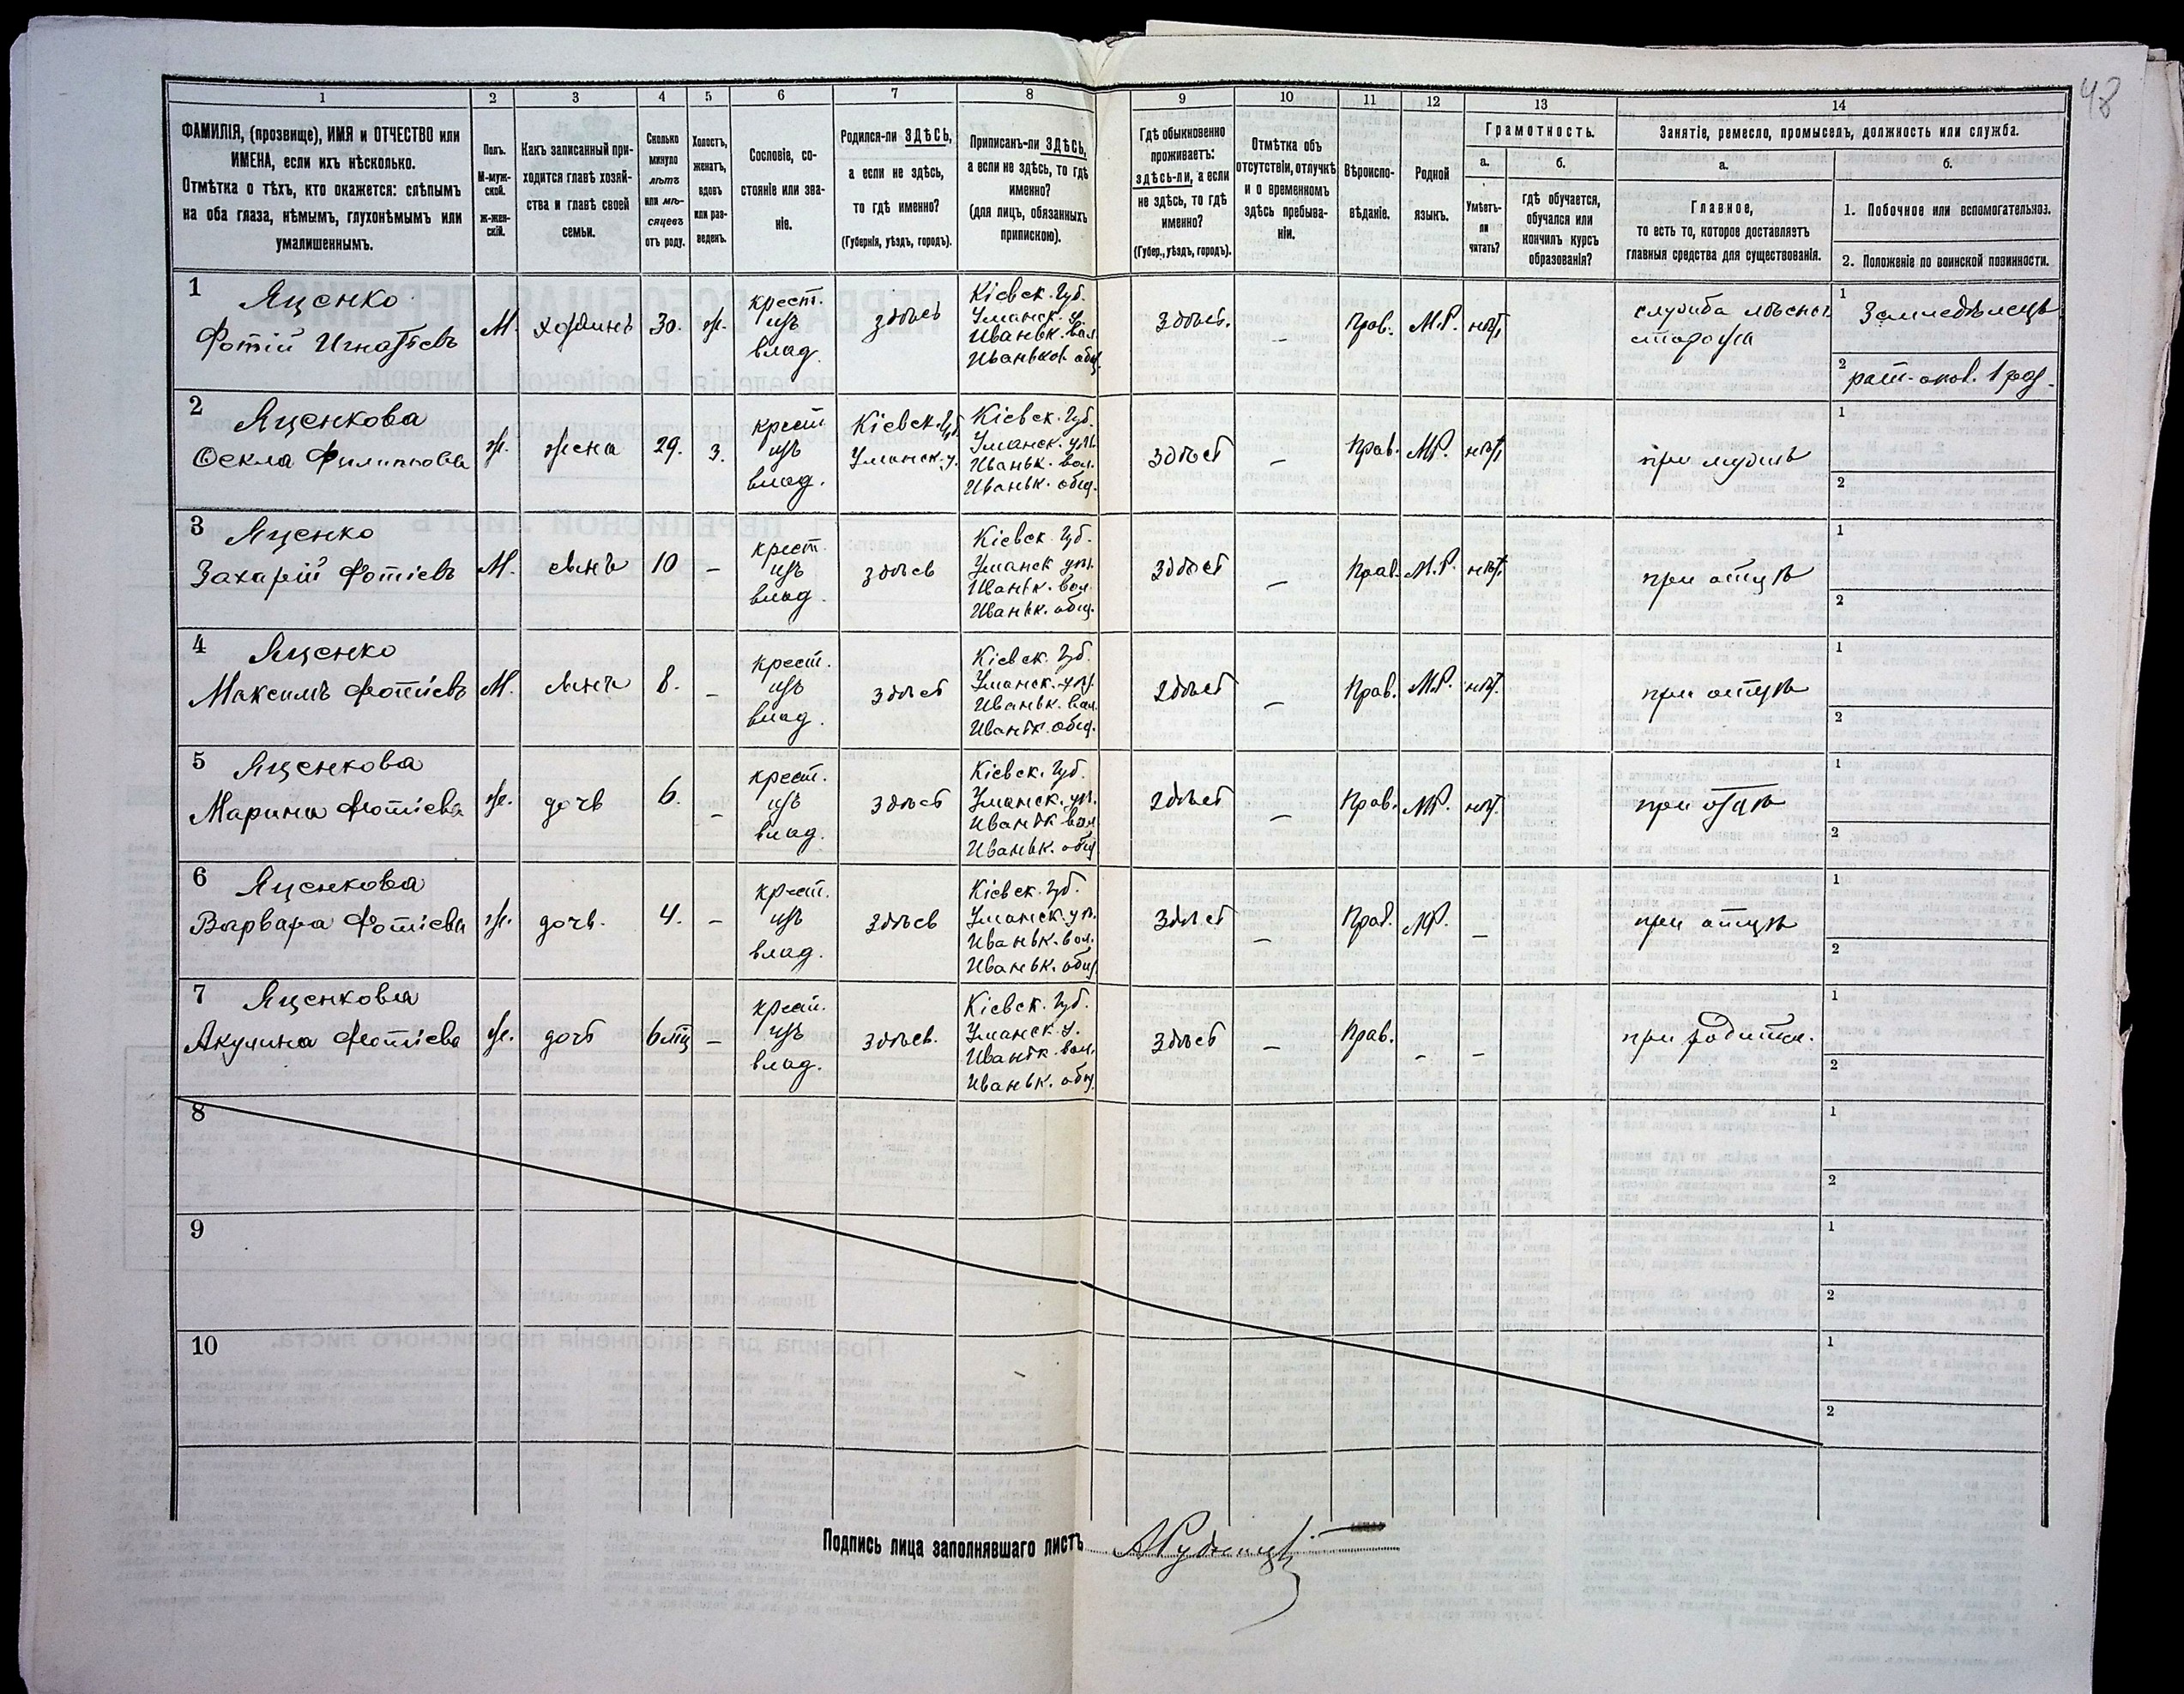 48
1 2 3 4 5 6 7 8 9 10 11 12 13 14
ФАМИЛІЯ, (прозвище), ИМЯ и ОТЧЕСТВО или
ИМЕНА, если ихъ нѣсколько.
Отмѣтка о тѣхъ, кто окажется: слѣпымъ
на оба глаза, нѣмымъ, глухонѣмымъ или
умалишеннымъ.
Полъ.
М-муж-
ской.
ж-жен-
скій.
Какъ записанный при-
ходится главѣ хозяй-
ства и главѣ своей
семьи.
Сколько
минуло
лѣтъ
или мѣ-
сяцевъ
отъ роду.
Холостъ,
женатъ,
вдовъ
или раз-
веденъ.
Сословіе, со-
стояніе или зва-
ніе.
Родился-ли ЗДѢСЬ,
а если не здѣсь,
то гдѣ именно?
(Губернія, уѣздъ, городъ).
Приписанъ-ли ЗДѢСЬ,
а если не здѣсь, то гдѣ
именно?
(для лицъ, обязанныхъ
припискою).
Гдѣ обыкновенно
проживаетъ:
здѣсь-ли, а если
не здѣсь, то гдѣ
именно?
(Губер., уѣздъ, городъ).
Отмѣтка объ
отсутствіи, отлучкѣ
и о временномъ
здѣсь пребыва-
ніи.
Вѣроиспо-
вѣданіе.
Родной
языкъ.
Грамотность.
а.
Умѣетъ-
ли
читать?
б.
гдѣ обучается,
обучался или
кончилъ курсъ
образованія?
Занятіе, ремесло, промыселъ, должность или служба.
а.
Главное,
то есть то, которое доставляетъ
главныя средства для существованія.
б.
1. Побочное или вспомогательное.
2. Положеніе по воинской повинности.
1
Яценко
Фотій Игнатьевъ
М.
хозяинъ
30.
ж.
крест.
изъ
влад.
здѣсь
Кіевск. Губ.
Уманск. у.
Иваньк. вол.
Иваньков. общ.
здѣсь.
–
Прав.
М.Р.
нѣт
служба лѣсного
сторожа
1
Земледѣлецъ
2
рат. опол. 1 раз.
2
Яценкова
Ѳекла Филиппова
ж.
жена
29.
з.
крест
изъ
влад.
Кіевск. Губ.
Уманск. у.
Кіевск. Губ.
Уманск. уѣз.
Иваньк. вол.
Иваньк. общ.
здѣсь
–
Прав.
МР.
нѣт
при мужѣ
1
2
3
Яценко
Захарій Фотіевъ
М.
сынъ
10
–
крест.
изъ
влад.
здѣсь
Кіевск. Губ.
Уманск уѣз.
Иваньк. вол.
Иваньк. общ.
здѣсь
–
Прав.
М.Р.
нѣт.
при отцѣ
1
2
4
Яценко
Максимъ Фотіевъ
М.
сынъ
8.
–
крест.
изъ
влад.
здѣсь
Кіевск. Губ.
Уманск. уѣз.
Иваньк. вол.
Иваньк. общ.
здѣсь
–
Прав.
М.Р.
нѣт.
при отцѣ
1
2
5
Яценкова
Марина Фотіева
ж.
дочь
6.
–
крест.
изъ
влад.
здѣсь
Кіевск. Губ.
Уманск. уѣз.
Иваньк вол
Иваньк. общ
здѣсь
–
Прав.
МР.
нѣт.
при отцѣ
1
2
6
Яценкова
Варвара Фотіева
ж.
дочь.
4.
–
крест.
изъ
влад.
здѣсь
Кіевск. Губ.
Уманск. уѣз.
Иваньк. вол.
Иваньк. общ.
здѣсь
–
Прав.
МР.
–
при отцѣ
1
2
7
Яценкова
Акулина Фотіева
ж.
дочь
6 мц
–
крест.
изъ
влад.
здѣсь.
Кіевск. Губ.
Уманск. у.
Иваньк. вол.
Иваньк. общ.
здѣсь
–
Прав.
–
–
при родител.
1
2
8
1
2
9
1
2
10
1
2
Подпись лица заполнявшаго листъ